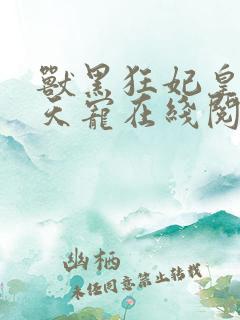 獸黑狂妃皇
天寵在綫閱
幽栖
未任同意禁止转载